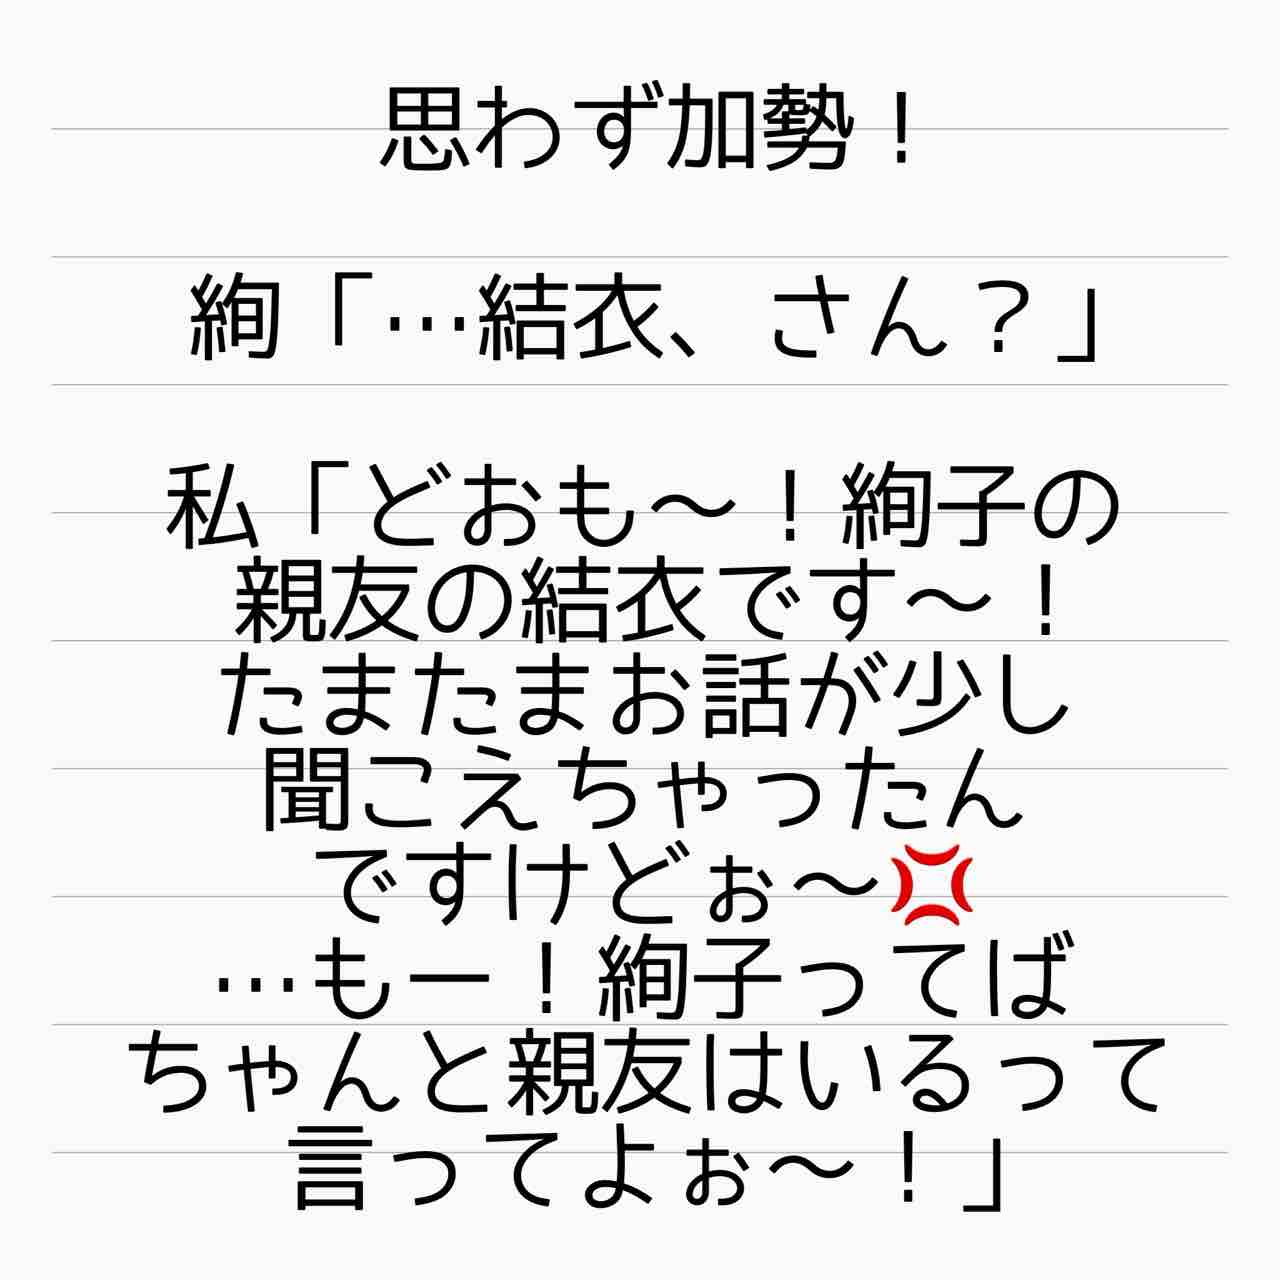 思わず加勢！
絢「…結衣、さん？」
私「どおも〜！絢子の
親友の結衣です〜！
たまたまお話が少し
聞こえちゃったん
ですけどぉ〜💢
…もー！絢子ってば
ちゃんと親友はいるって
言ってよぉ〜！」